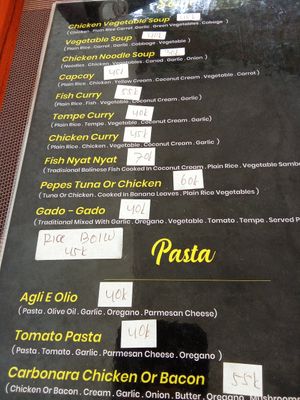 Chicken Vegetable Soup
( Chicken . Plain Rice Carrot . Garlic . Green Vegetables . Cabage )
Vegetable Soup
( Plain Rice Carrot . Garlic . Cabbage . Vegetable )
Chicken Noodle Soup
( Noodles . Chicken . Vegetables . Carrot . Garlic . Onion )
Capcay 45k
( Plain Rice . Chicken . Yellow Cream . Coconut Cream . Vegetable . Carrot )
Fish Curry 55k
( Plain Rice . Fish . Vegetable . Coconut Cream . Garlic )
Tempe Curry 40k
( Plain Rice . Tempe . Vegetable . Coconut Cream )
Chicken Curry 45k
( Plain Rice . Chicken . Vegetable . Coconut Cream . Garlic )
Fish Nyat Nyat 70k
( Tradisional Balinese Fish Cooked In Coconut Cream . Plain Rice . Vegetable
Pepes Tuna Or Chicken 60k
( Tuna Or Chicken . Cooked In Banana Leaves . Plain Rice Vegetables )
Gado - Gado 40k
( Traditional Mixed With Garlic . Oregano . Vegetable . Tomato . Tempe . Served
RICE BOWL
45k
Pasta
Agli E Olio 40k
( Pasta . Olive Oil . Garlic . Oregano . Parmesan Cheese)
Tomato Pasta 40k
( Pasta . Tomato . Garlic . Parmesan Cheese . Oregano )
Carbonara Chicken Or Bacon 55k
( Chicken Or Bacon . Cream . Garlic . Onion . Butter . Oregano . Mushrooms